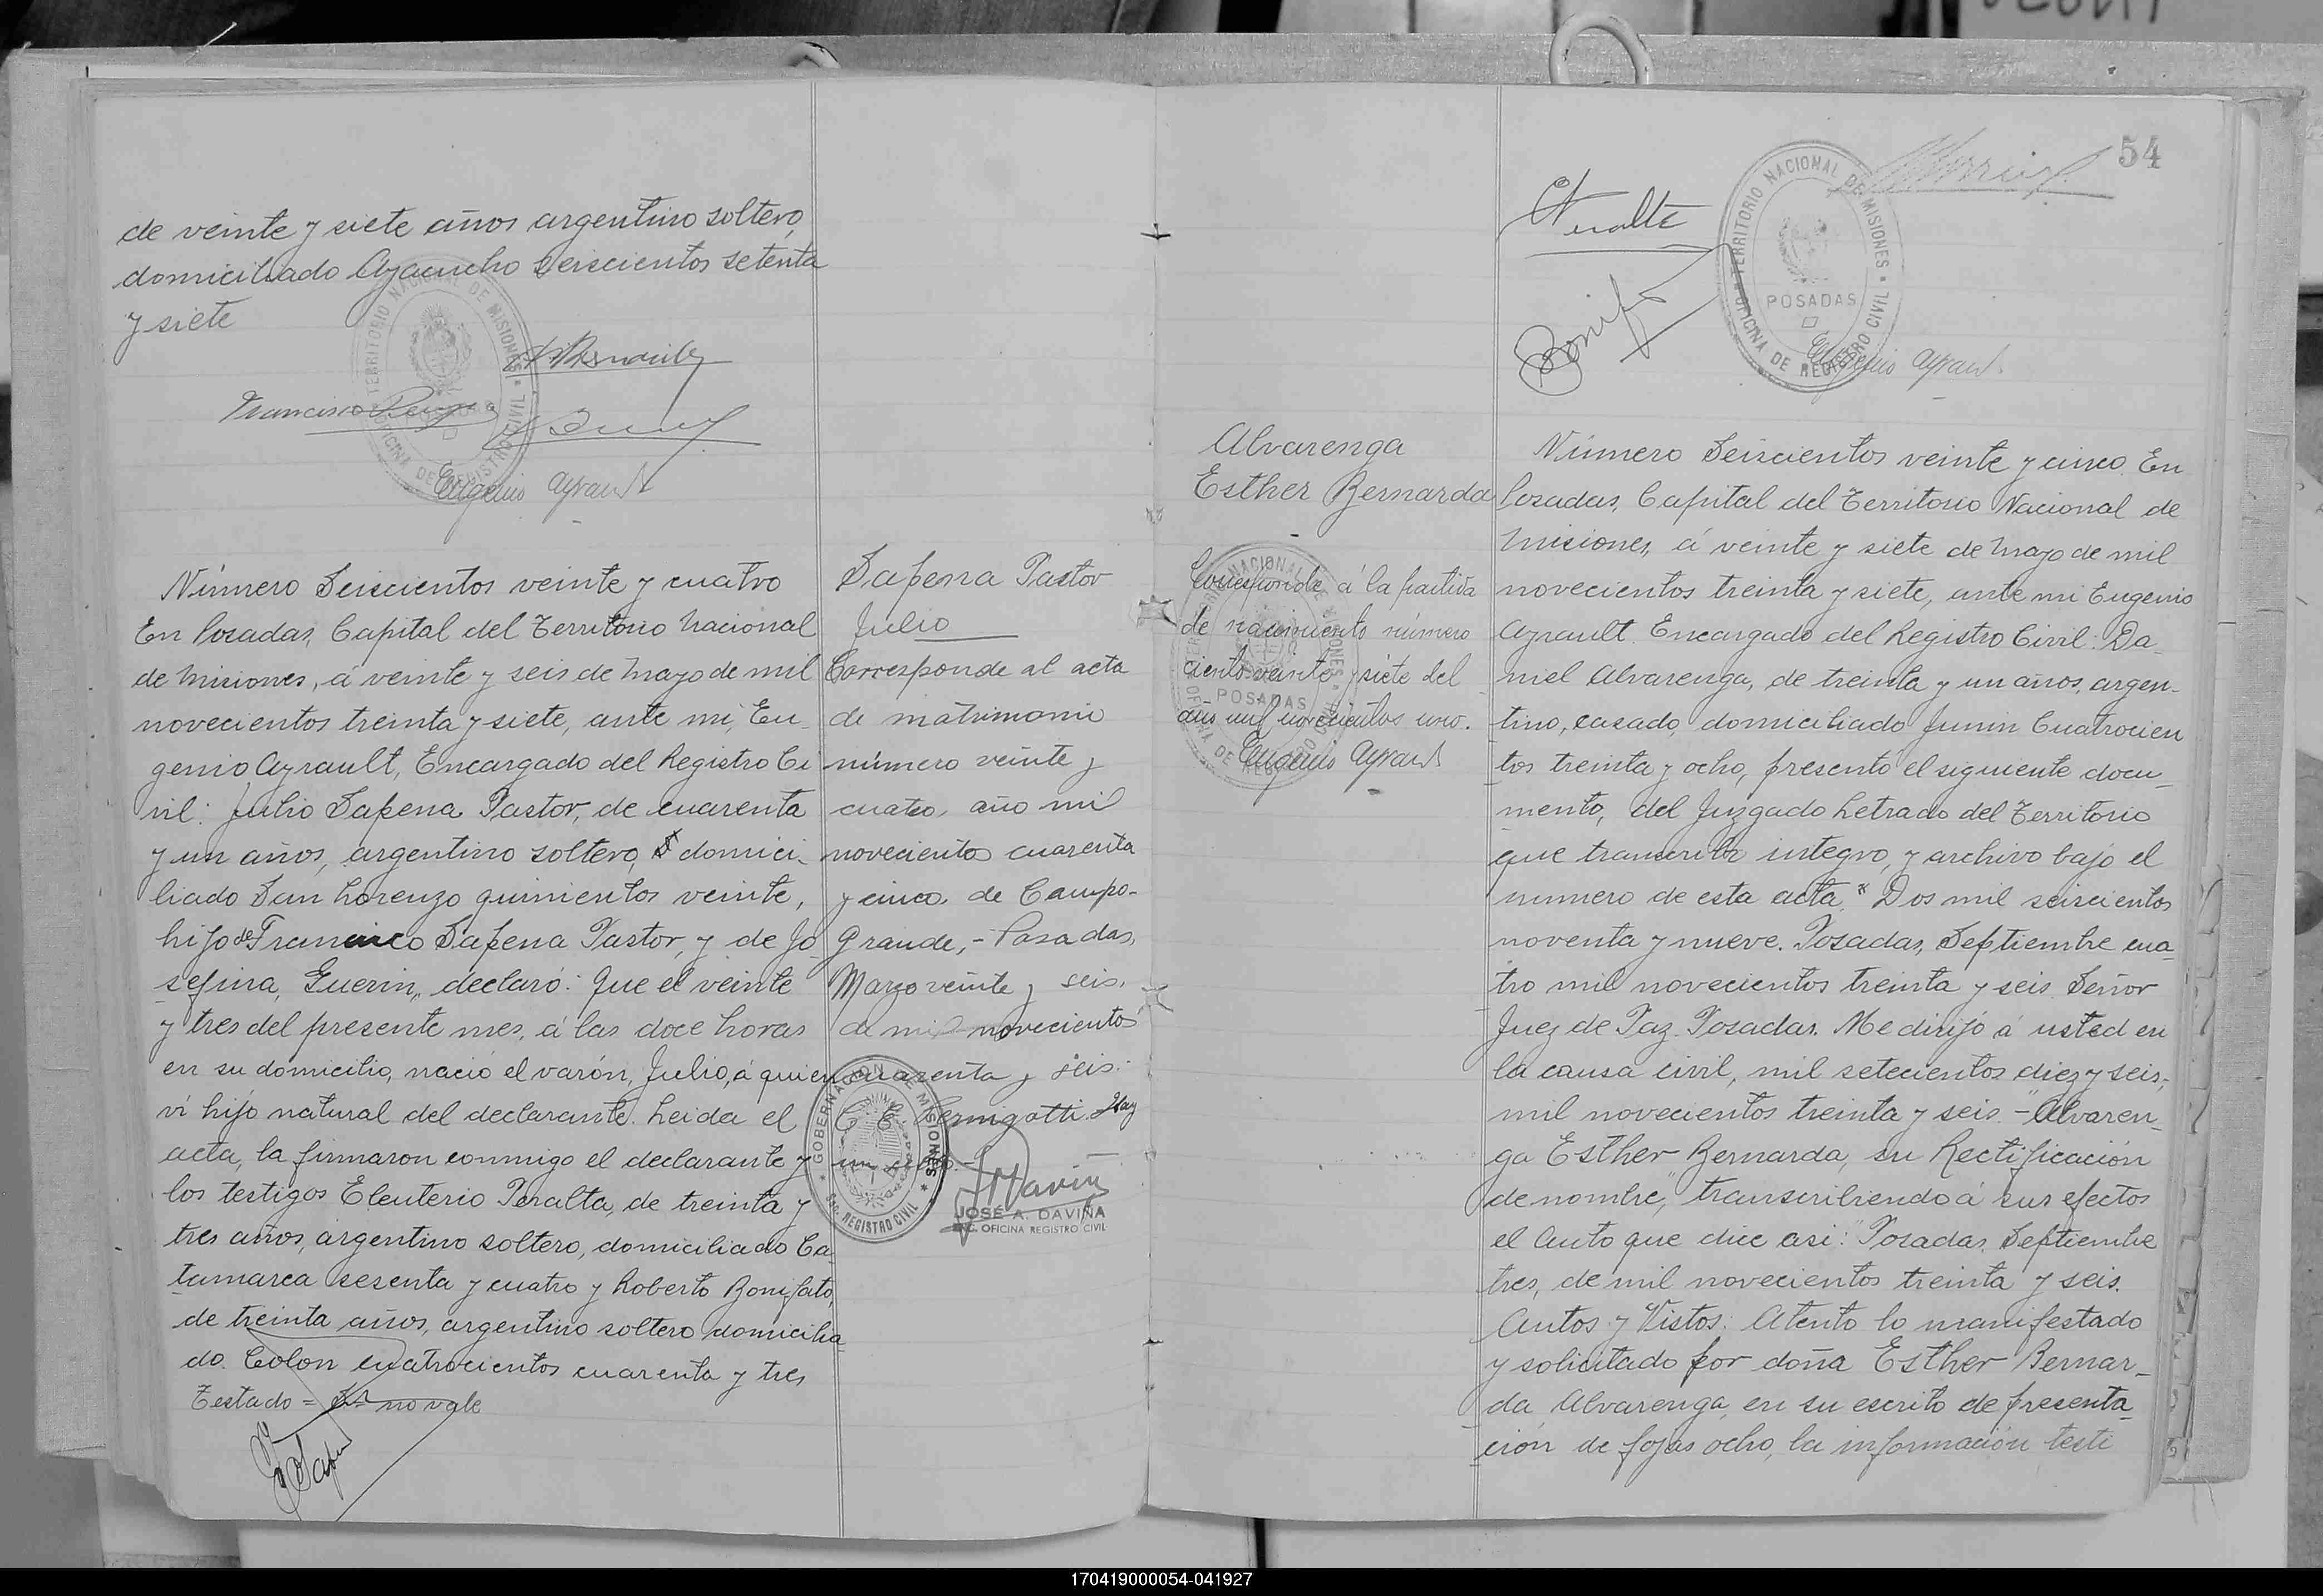 de veinte y siete años argentino soltero,
domiciliado Ayacucho Seiscientos setenta
y siete
TERRITORIO NACIONAL DE MISIONES
OFICINA DE REGISTRO CIVIL
Francisco
Eugenio Ayrault
Número Seiscientos veinte y cuatro
En Posadas, Capital del Territorio Nacional
de Misiones, á veinte y seis de Mayo de mil
novecientos treinta y siete, ante mi, Eu_
genio Ayrault, Encargado del Registro Ci
vil: Julio Sapena Pastor, de cuarenta
y un años, argentino soltero, S domici_
liado San Lorenzo quinientos veinte,
hijo de Francisco Sapena Pastor, y de Jo
sefina, Guerin, declaró: Que el veinte
y tres del presente mes, á las doce horas
en su domicilio, nació el varón, Julio, á quien
ví hijo natural del declarante. Leida el
acta, la firmaron conmigo el declarante y
los testigos Eleuterio Peralta, de treinta y
tres años, argentino soltero, domiciliado Ca_
tamarca sesenta y cuatro y Roberto Bonifato,
de treinta años, argentino soltero domicilia_
do. Colon cuatrocientos cuarenta y tres
Testado = S = no vale
Sapena Pastor
Julio
Corresponde al acta
de matrimonio
número veinte y
cuatro, año mil
novecientos cuarenta
y cinco, de Campo-
Grande,- Posadas,
Marzo veinte y seis,
de mil novecientos
cuarenta y seis.
C. E. Pernigotti Hay
un sello.-
GOBERNACION MISIONES
REGISTRO CIVIL
JOSÉ A. DAVIÑA
ENC. OFICINA REGISTRO CIVIL
54
Peralta
Bonifa
TERRITORIO NACIONAL DE MISIONES
POSADAS
OFICINA DE REGISTRO CIVIL
Eugenio Ayrault
Alvarenga
Esther Bernarda
Corresponde á la partida
de nacimiento número
ciento veinte y siete del
año mil novecientos uno.
Eugenio Ayrault
POSADAS
Número Seiscientos veinte y cinco. En
Posadas, Capital del Territorio Nacional de
Misiones, á veinte y siete de Mayo de mil
novecientos treinta y siete, ante mi Eugenio
Ayrault. Encargado del Registro Civil: Da_
niel Alvarenga, de treinta y un años, argen_
tino, casado, domiciliado Junin Cuatrocien
tos treinta y ocho, presentó el siguiente docu_
mento, del Juzgado Letrado del Territorio
que transcribo integro, y archivo bajo el
número de esta acta. "Dos mil seiscientos
noventa y nueve. Posadas, Septiembre cua_
tro mil novecientos treinta y seis. Señor
Juez de Paz. Posadas. Me dirijo á usted en
la causa civil, mil setecientos diez y seis,
mil novecientos treinta y seis - "Alvaren_
ga Esther Bernarda, su Rectificación
de nombre", transcribiendo á sus efectos
el Auto que dice así: "Posadas, Septiembre
tres, de mil novecientos treinta y seis.
Autos y Vistos: Atento lo manifestado
y solicitado por doña Esther Bernar_
da Alvarenga, en su escrito de presenta_
ción de fojas ocho, la información testi
170419000054-041927